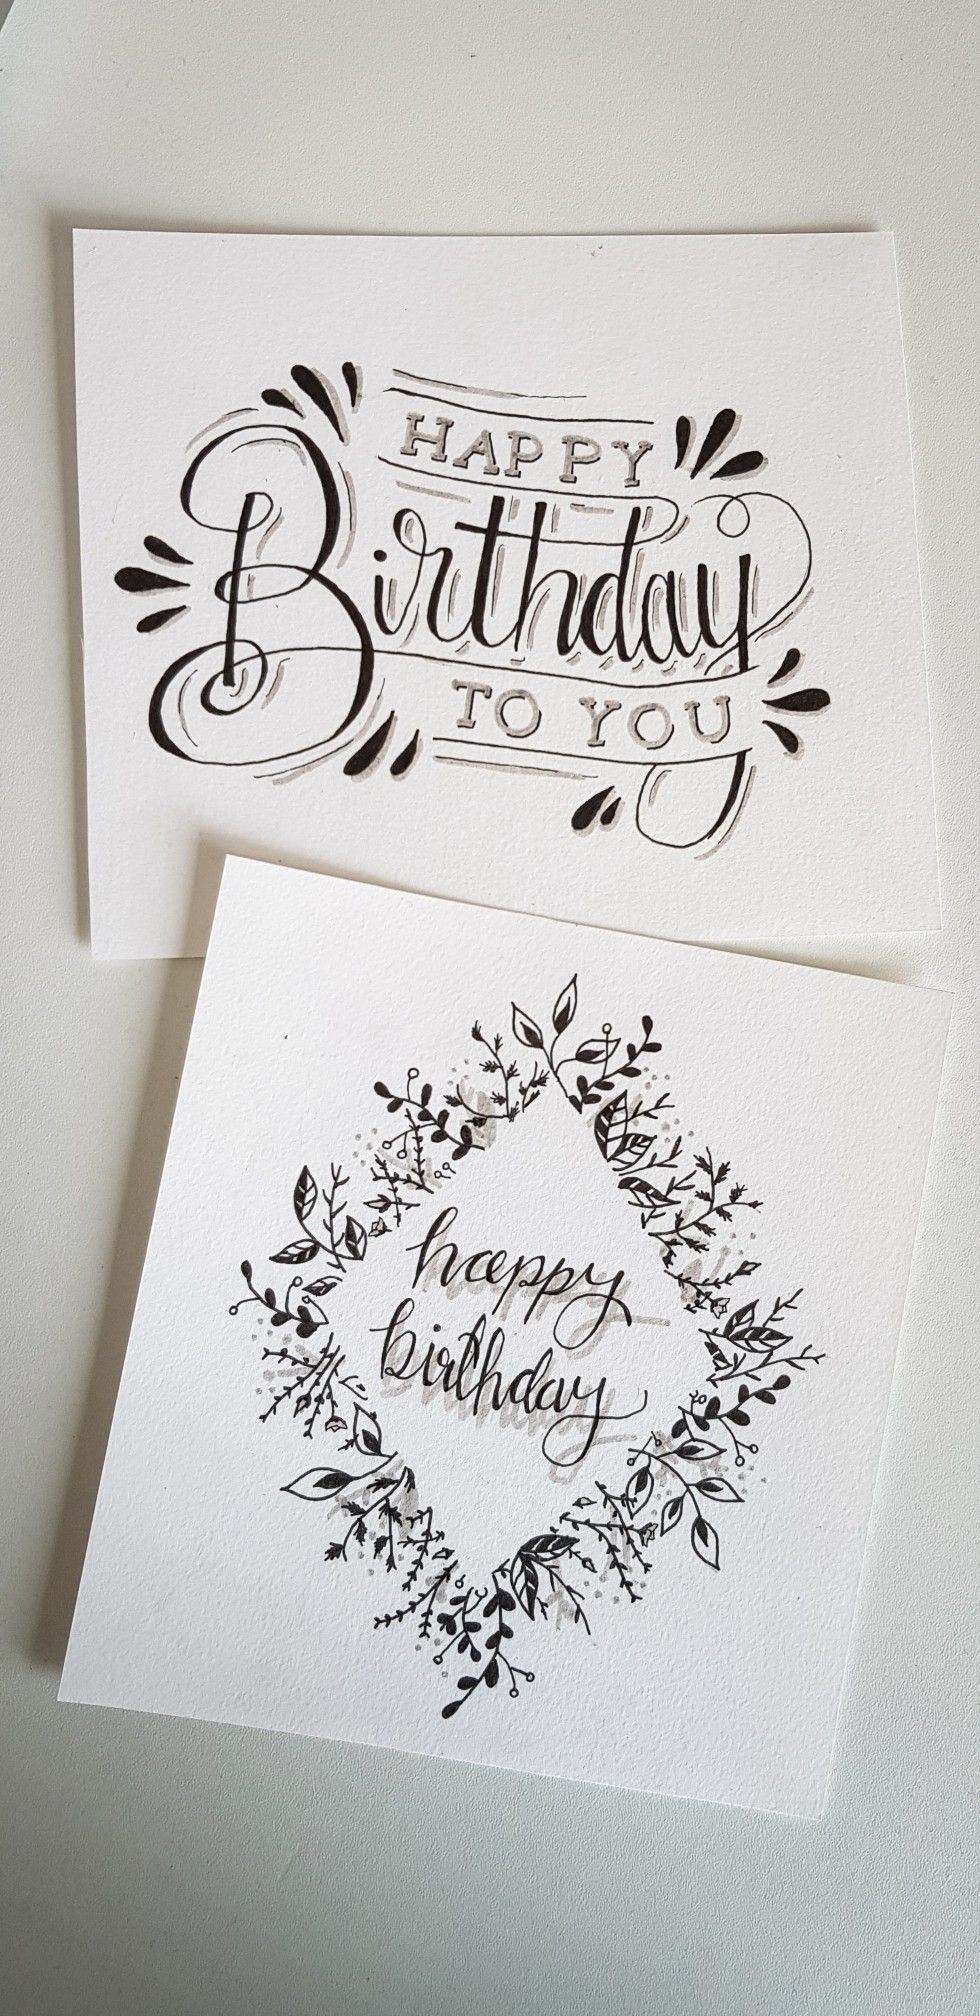 HAPPY
Birthday
TO YOU
happy
birthday